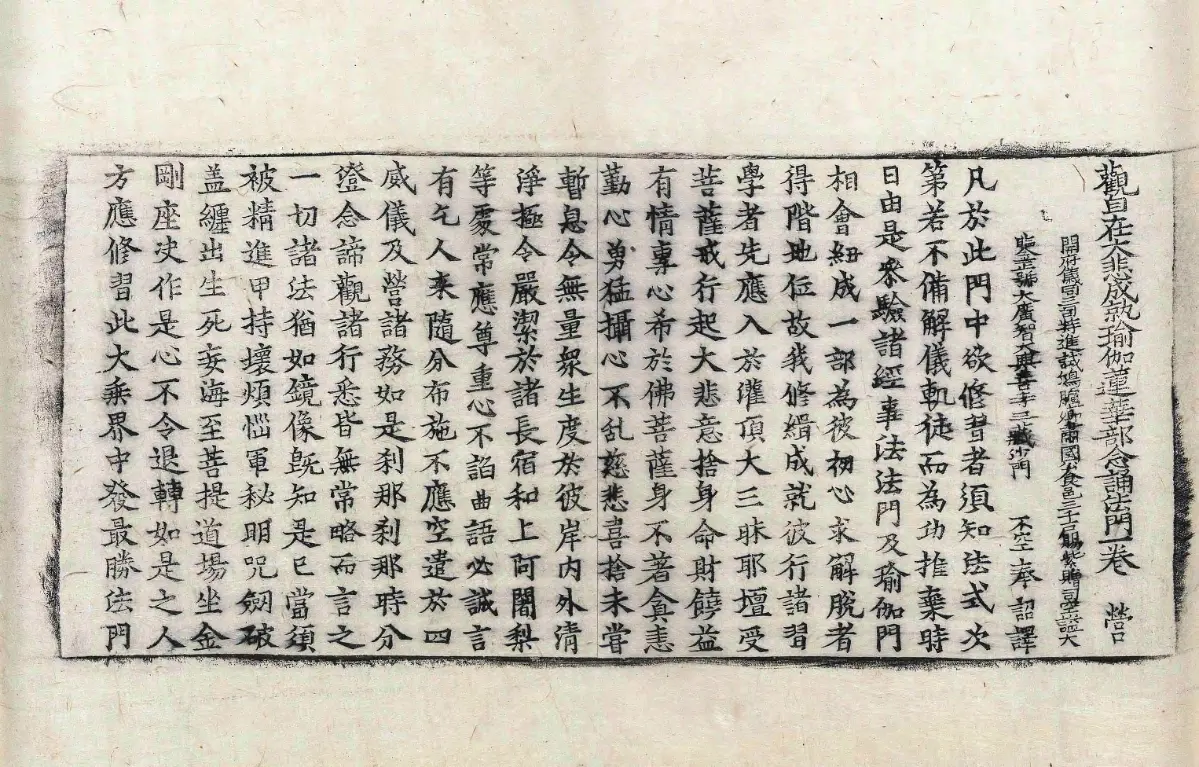 觀自在大悲成就瑜伽蓮華部念誦法門一卷 營
開府儀同三司特進試鴻臚卿肅國公食邑三千戶賜紫贈司空謚大
鑒正號大廣智大興善寺三藏沙門 不空奉 詔譯
凡於此門中欲修習者須知法式次
第若不備解儀軌徒而為功推棄時
日由是參驗諸經事法法門及瑜伽門
相會紐成一部為彼初心求解脫者
得階地位故我修緝成就彼行諸習
學者先應入於灌頂大三昧耶壇受
菩薩戒行起大悲意捨身命財饒益
有情專心希於佛菩薩身不著貪恚
勤心勇猛攝心不乱慈悲喜捨未甞
暫息令無量眾生度於彼岸內外清
淨極令嚴潔於諸長宿和上阿闍梨
等處常應尊重心不諂曲語必誠言
有乞人来隨分布施不應空遣於四
威儀及營諸務如是刹那刹那時分
澄念諦觀諸行悉皆無常略而言之
一切諸法猶如鏡像旣知是已當須
被精進甲持壞煩惱軍秘明咒劔破
盖纏出生死妄海至菩提道場坐金
剛座决作是心不令退轉如是之人
方應修習此大乘界中發最勝法門